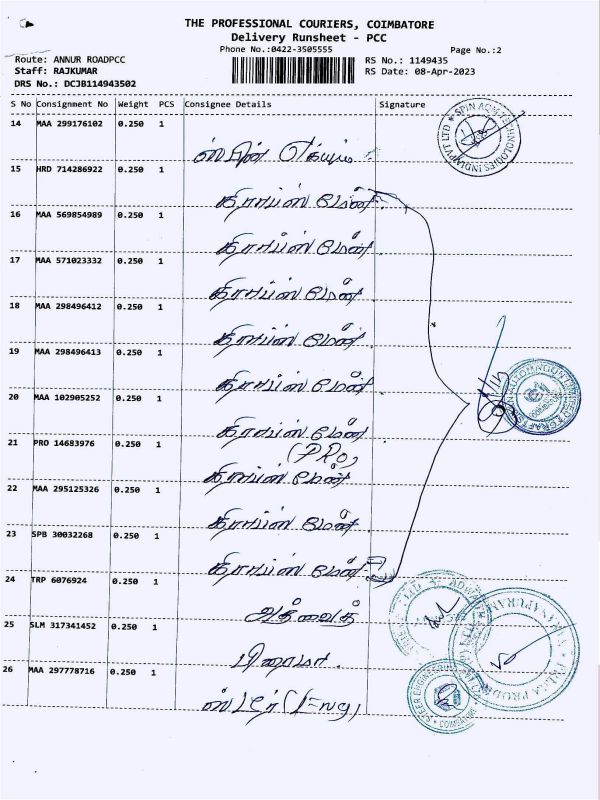 THE PROFESSIONAL COURIERS, COIMBATORE
Delivery Runsheet - PCC
Phone No.:0422-3505555
Page No.:2
Route: ANNUR ROADPCC
Staff: RAJKUMAR
DRS No.: DCJB114943502
RS No.: 1149435
RS Date: 08-Apr-2023
S No Consignment No Weight PCS Consignee Details Signature
14 MAA 299176102 0.250 1
ஸ்பின்
15 HRD 714286922 0.250 1
கிராப்ஸ் மேன்
16 MAA 569854989 0.250 1
கிராப்ஸ் மேன்
17 MAA 571023332 0.250 1
கிராப்ஸ் மேன்
18 MAA 298496412 0.250 1
கிராப்ஸ் மேன்
19 MAA 298496413 0.250 1
கிராப்ஸ் மேன்
20 MAA 102905252 0.250 1
கிராப்ஸ் மேன்
(PRO)
21 PRO 14683976 0.250 1
கிராப்ஸ் மேன்
22 MAA 295125326 0.250 1
கிராப்ஸ் மேன்
23 SPB 30032268 0.250 1
கிராப்ஸ் மேன்
24 TRP 6076924 0.250 1
அத்வைத்
25 SLM 317341452 0.250 1
26 MAA 297778716 0.250 1
ஸ்டீர் (Eng)
SPIN AQM TECHNOLOGIES INDIA PVT LTD